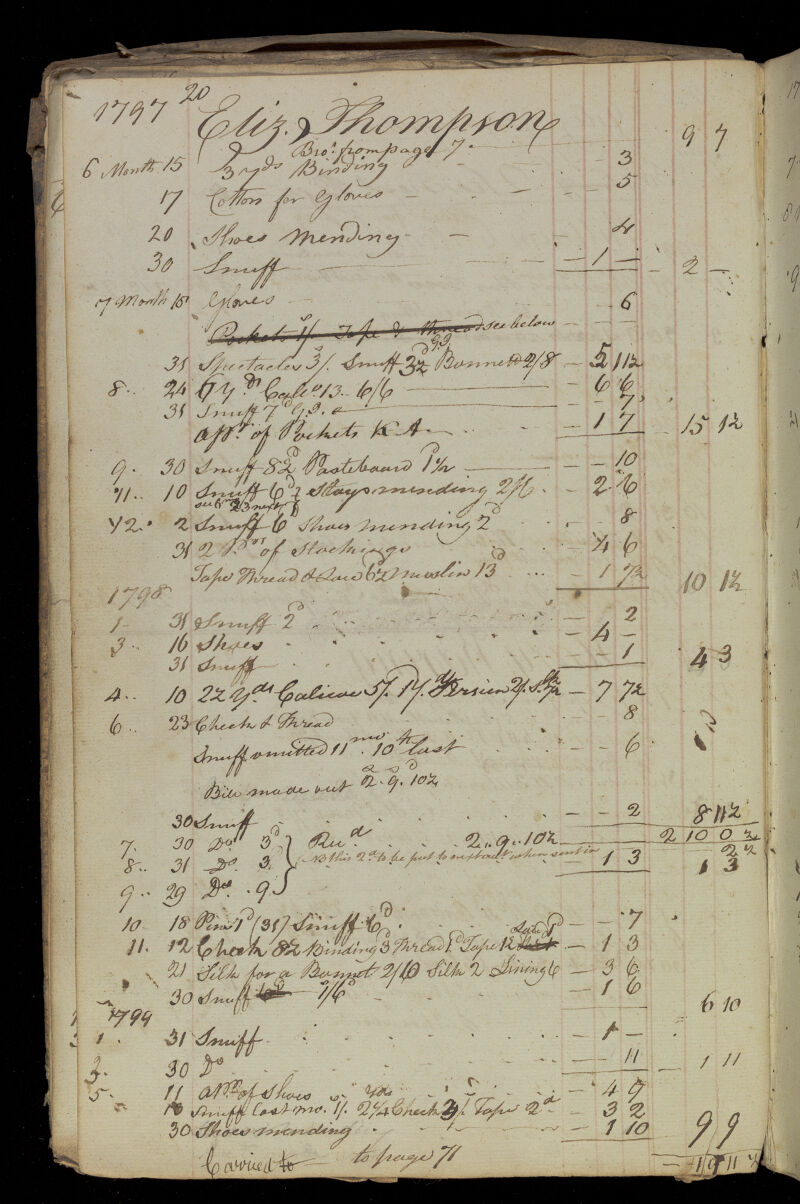 1797 20 Eliz. Thompson
Bro.t from page 7 9 7
6 Month 15 3 yds Binding 3
17 Cotton for Gloves 5
20 Shoes Mending 4
30 Snuff 1 — 2 —
7 Month 15 Gloves 6
Pockets 1/ Tape & thread see below
31 Spectacles 3/. Snuff 3½ Bonnet 2/8 5 11½
8 24 Y.ds Calico 13 6/6 6 6
31 Snuff 7d 7
a p.r of Pockets K A 1 7 15 1½
9 30 Snuff 8½ Pasteboard 1½ 10
11 10 Snuff 6d Stays mending 2/ 2 6
12 2 Snuff 6 Shoes mending 2d 8
31 2 P.rs of Stockings 4 6
Tape Thread & muslin 13d 1 7½ 10 1½
1798
1 31 Snuff 2d 2
3 16 Shoes 4 —
31 Snuff 1 4 3
4 10 Y.ds Calicoe 5/. Persian 2/. 7 7½
6 23 Check & Thread 8
Snuff omitted 11 mo 10th last 6
Bill made out 2. 9. 10½
30 Snuff 2 8 11½
7 30 Do 3d Rec.d 2. 9. 10½ 2 10 0½
8 31 Do 3 NB this 2d to be put to next acct when sent in 1 3 1 3
9 29 Do 9
10 18 Pins 1d (31) Snuff 6d 7
11 12 Check 8½ Binding 3 Thread 1d Tape 1½ 1 3
21 Silk for a Bonnet 2/10 Silk 2 Lining 6 3 6
30 Snuff 1/6d 1 6 6 10
1799
1 31 Snuff 1 —
3 30 Do 11 1 11
5 11 a P.r of Shoes 4 9
18 Snuff last mo. 1/. 2¼ yds Check Tape 2d 3 2
30 Shoes mending 1 10 9 9
Carried to to page 71 11